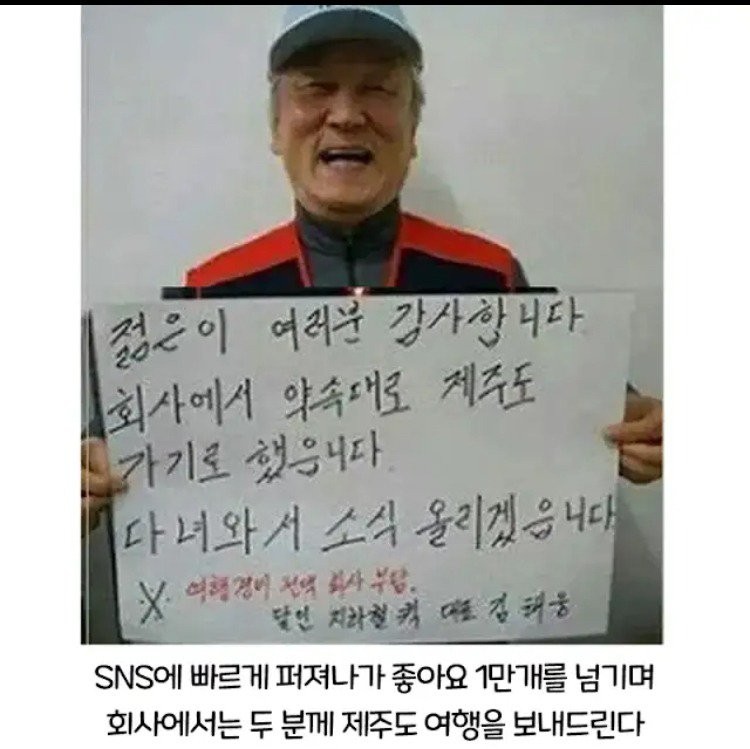 젊은이 여러분 감사합니다.
회사에서 약속대로 제주도
가기로 했읍니다.
다녀와서 소식 올리겠읍니다
※. 여행경비 전액 회사 부담.
달인 지하철 퀵 대표 김태웅
SNS에 빠르게 퍼져나가 좋아요 1만개를 넘기며
회사에서는 두 분께 제주도 여행을 보내드린다